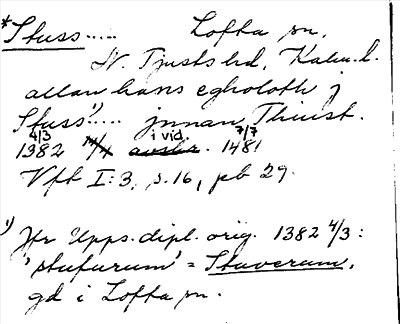 *Stuss..... Lofta sn,
N. Tjusts hd, Kalm. l.
allan hans egholoth j
Stuss¹)..... jnnan Thiust.
4/3 i vid. 7/7
1382 avskr. 1481
Vft I:3, s. 16, pb 29.
1) Jfr Upps. dipl. orig. 1382 4/3:
'stufurum' = Stuverum,
gd i Lofta sn.